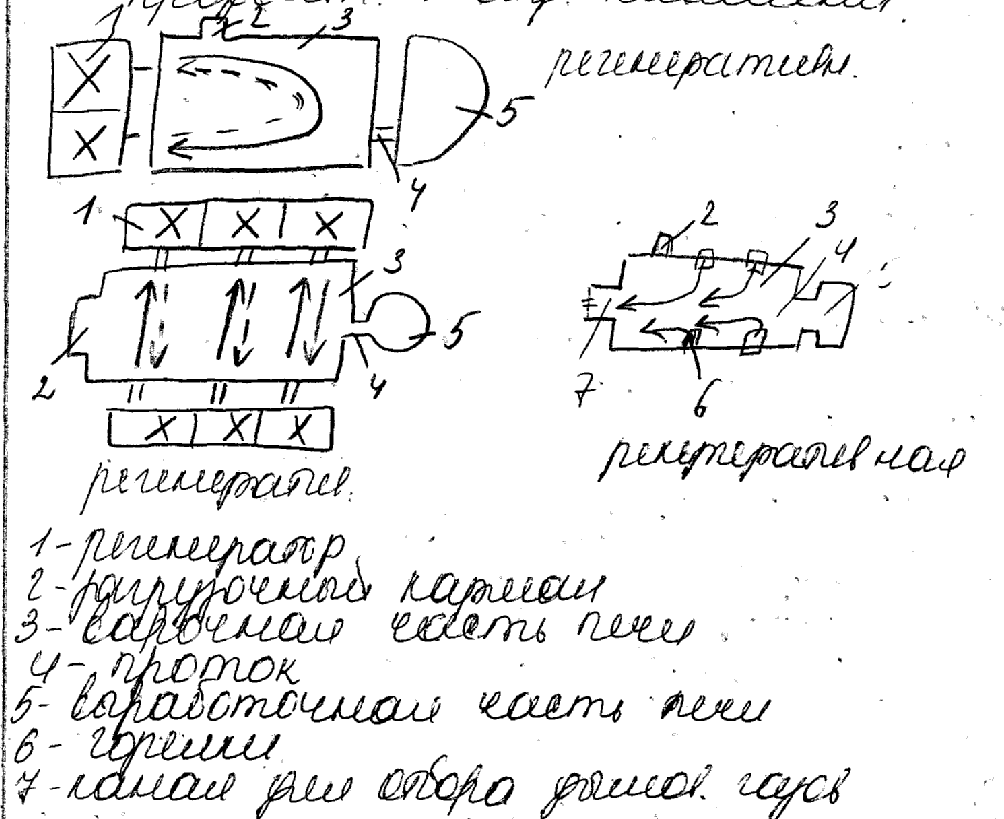 регенеративн.
1 2 3
5
4
1
3
5
2
4
2 3
4
7 6
регенератив.
рекуперативная
1- регенератор
2- загрузочный карман
3- варочная часть печи
4- проток
5- выработочная часть печи
6- горелки
7- канал для отбора дымов. газов